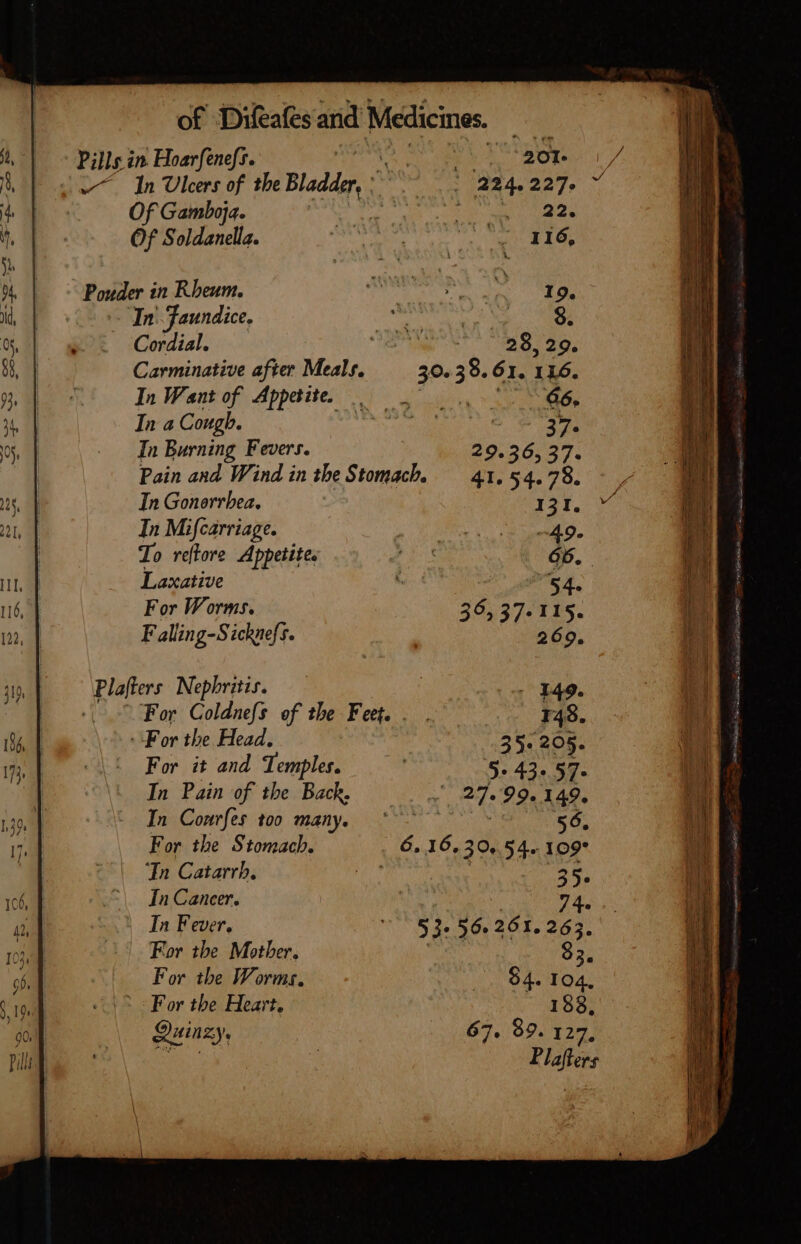 of Diſeaſes and Medicines.
Pills in Hoarſeneſs. 201.
In Ulcers of the Bladder, 224. 227.
Of Gamboja. 22.
Of Soldanella. 116,
Pouder in Rheum. 19.
In Jaundice. 8.
Cordial. 28, 29.
Carminative after Meals. 30. 38. 61. 116.
In Want of Appetite. 66,
In a Cough. 37.
In Burning Fevers. 29. 36, 37.
Pain and Wind in the Stomach. 41. 54. 78.
In Gonorrhea. 131.
In Miſcarriage. 49.
To reſtore Appetite. 66.
Laxative 54.
For Worms. 36, 37. 115.
Falling-Sickneſs. 269.
Plaſters Nephritis. 149.
For Coldneſs of the Feet. 148.
For the Head. 35. 205.
For it and Temples. 5. 43. 57.
In Pain of the Back. 27. 99. 149.
In Courſes too many. 56.
For the Stomach. 6. 16. 30. 54. 109.
In Catarrh. 35.
In Cancer. 74.
In Fever. 53. 56. 261. 263.
For the Mother. 83.
For the Worms. 84. 104.
For the Heart. 188,
Quinzy. 67. 89. 127.
Plaſters